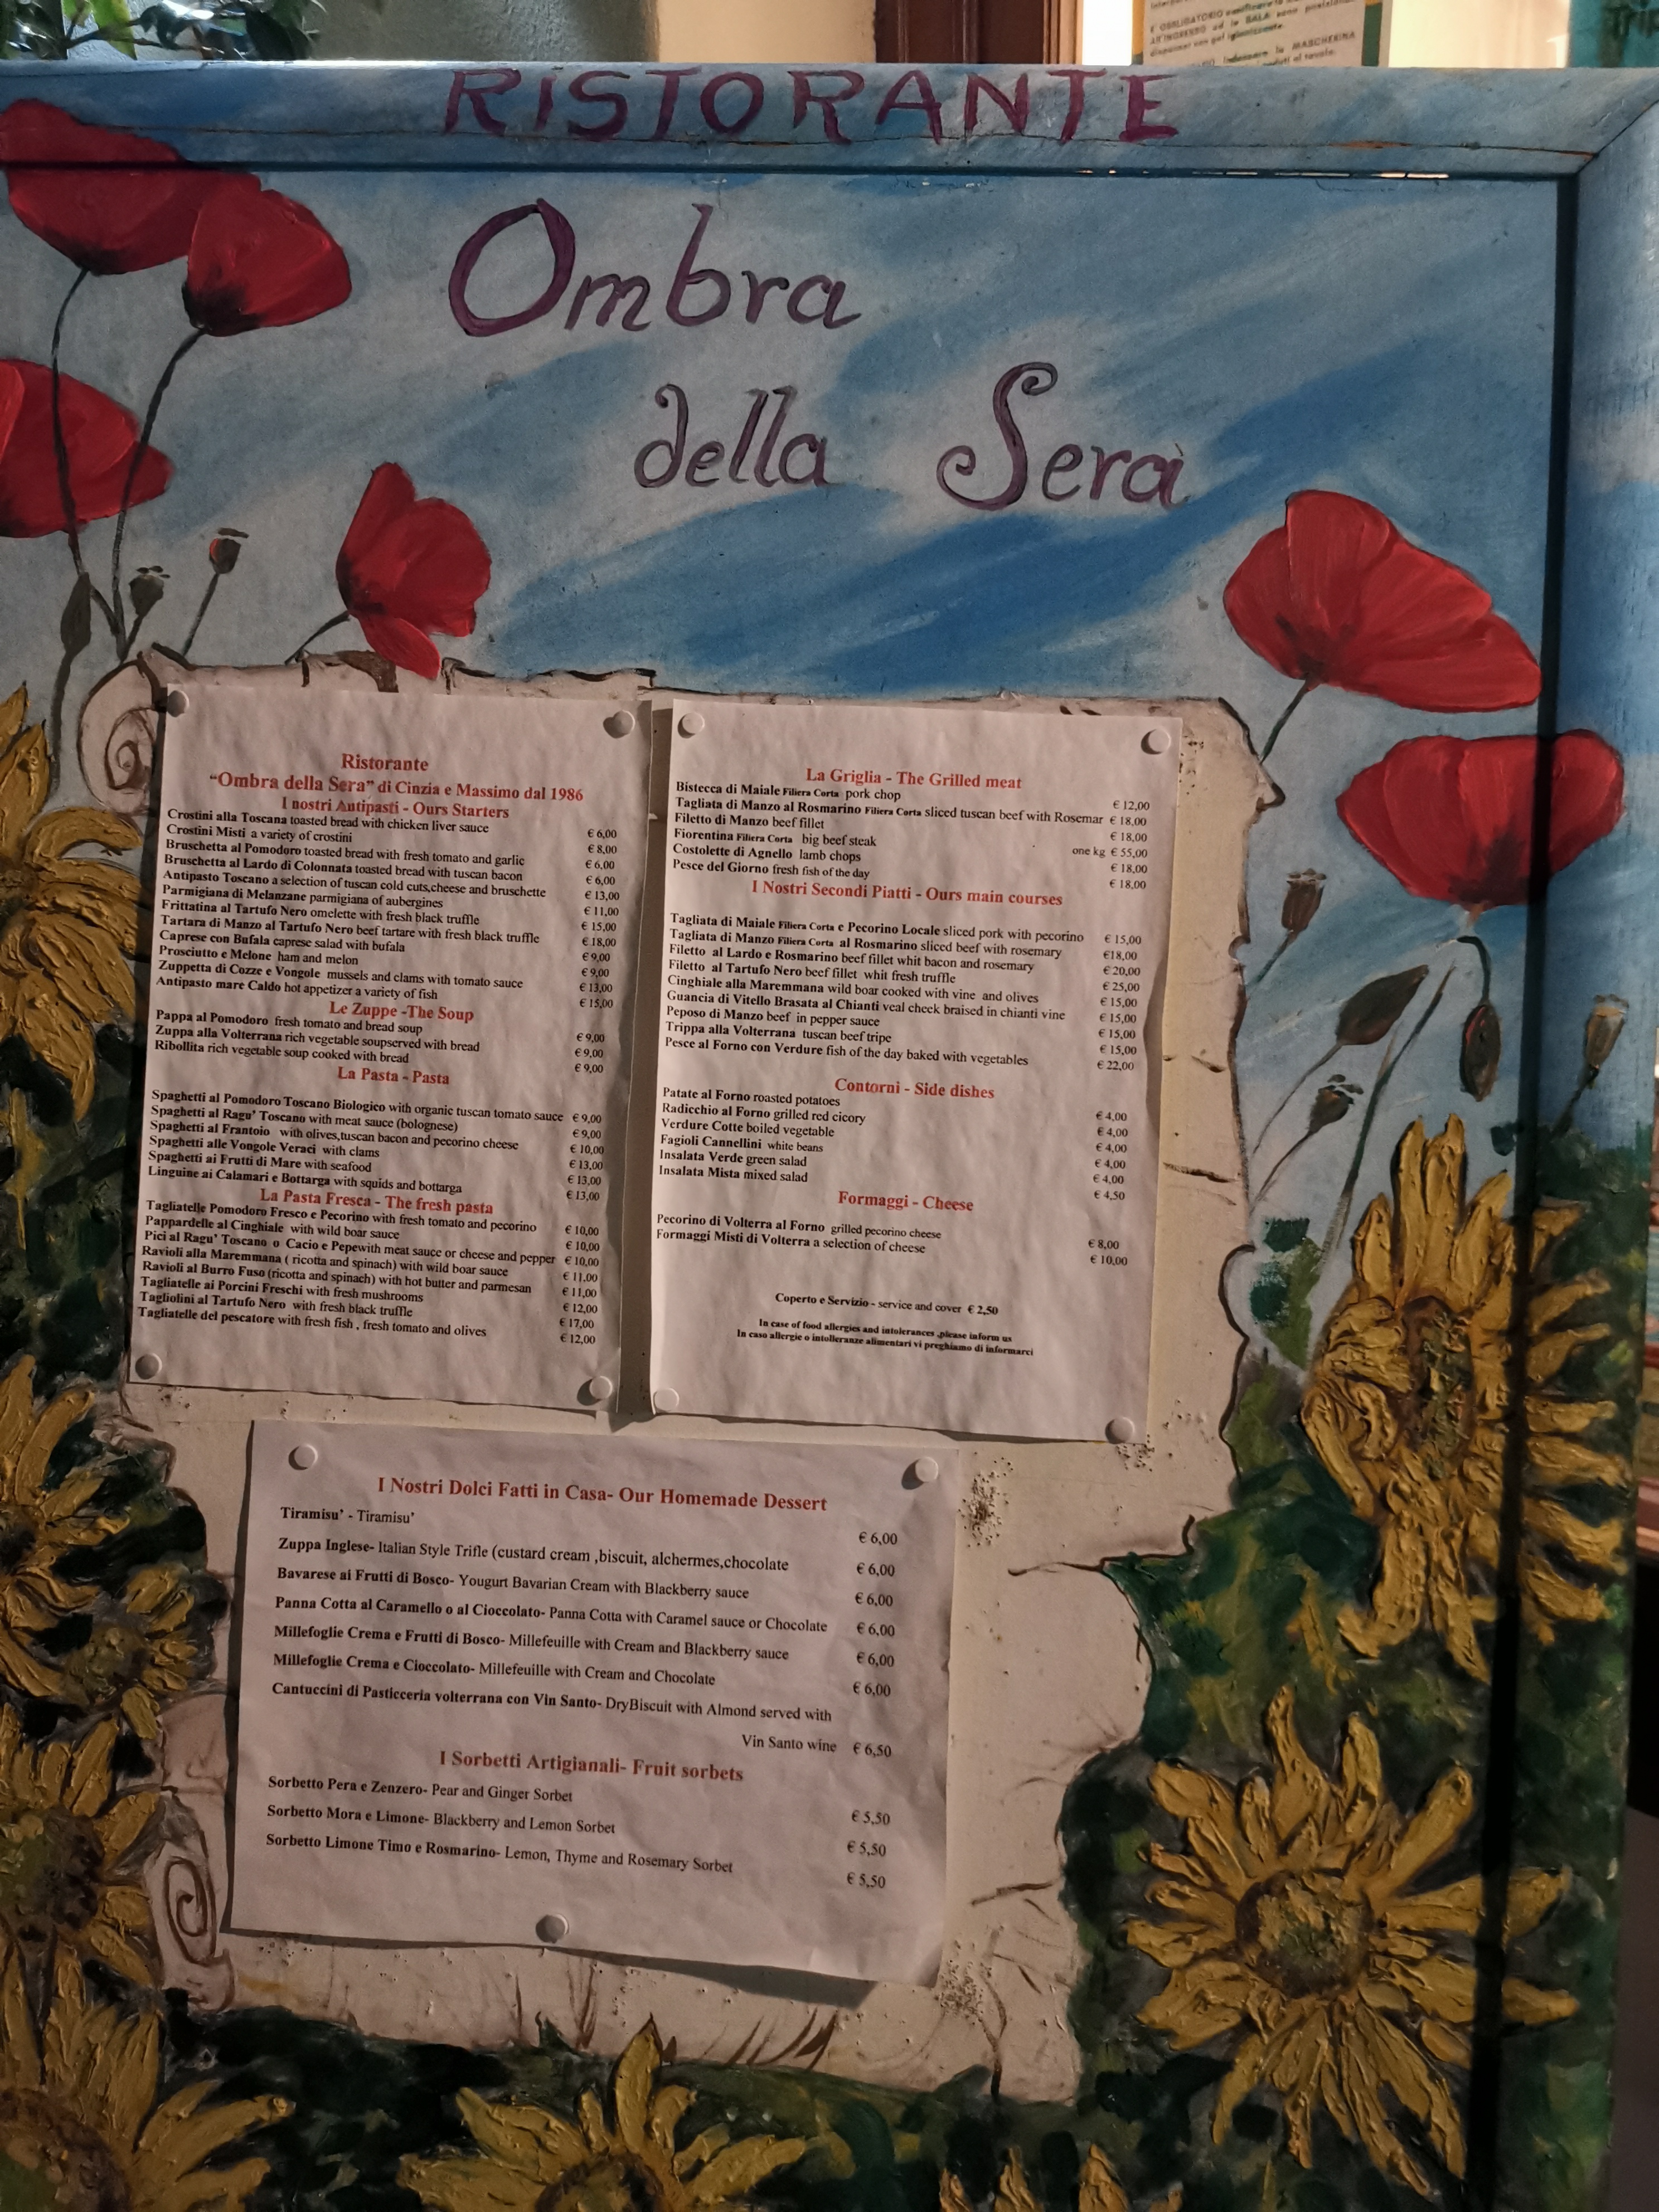 E' OBBLIGATORIO
la MASCHERINA
RISTORANTE
Ombra
della Sera
Ristorante
"Ombra della Sera" di Cinzia e Massimo dal 1986
I nostri Antipasti - Ours Starters
Crostini alla Toscana toasted bread with chicken liver sauce € 6,00
Crostini Misti a variety of crostini € 8,00
Bruschetta al Pomodoro toasted bread with fresh tomato and garlic € 6,00
Bruschetta al Lardo di Colonnata toasted bread with tuscan bacon € 6,00
Antipasto Toscano a selection of tuscan cold cuts,cheese and bruschette € 13,00
Parmigiana di Melanzane parmigiana of aubergines € 11,00
Frittatina al Tartufo Nero omelette with fresh black truffle € 15,00
Tartara di Manzo al Tartufo Nero beef tartare with fresh black truffle € 18,00
Caprese con Bufala caprese salad with bufala € 9,00
Prosciutto e Melone ham and melon € 9,00
Zuppetta di Cozze e Vongole mussels and clams with tomato sauce € 13,00
Antipasto mare Caldo hot appetizer a variety of fish € 15,00
Le Zuppe -The Soup
Pappa al Pomodoro fresh tomato and bread soup € 9,00
Zuppa alla Volterrana rich vegetable soupserved with bread € 9,00
Ribollita rich vegetable soup cooked with bread € 9,00
La Pasta - Pasta
Spaghetti al Pomodoro Toscano Biologico with organic tuscan tomato sauce € 9,00
Spaghetti al Ragu' Toscano with meat sauce (bolognese) € 9,00
Spaghetti al Frantoio with olives,tuscan bacon and pecorino cheese € 10,00
Spaghetti alle Vongole Veraci with clams € 13,00
Spaghetti ai Frutti di Mare with seafood € 13,00
Linguine ai Calamari e Bottarga with squids and bottarga € 13,00
La Pasta Fresca - The fresh pasta
Tagliatelle Pomodoro Fresco e Pecorino with fresh tomato and pecorino € 10,00
Pappardelle al Cinghiale with wild boar sauce € 10,00
Pici al Ragu' Toscano o Cacio e Pepewith meat sauce or cheese and pepper € 10,00
Ravioli alla Maremmana ( ricotta and spinach) with wild boar sauce € 11,00
Ravioli al Burro Fuso (ricotta and spinach) with hot butter and parmesan € 11,00
Tagliatelle ai Porcini Freschi with fresh mushrooms € 12,00
Tagliolini al Tartufo Nero with fresh black truffle € 17,00
Tagliatelle del pescatore with fresh fish , fresh tomato and olives € 12,00
La Griglia - The Grilled meat
Bistecca di Maiale Filiera Corta pork chop € 12,00
Tagliata di Manzo al Rosmarino Filiera Corta sliced tuscan beef with Rosemar € 18,00
Filetto di Manzo beef fillet € 18,00
Fiorentina Filiera Corta big beef steak one kg € 55,00
Costolette di Agnello lamb chops € 18,00
Pesce del Giorno fresh fish of the day € 18,00
I Nostri Secondi Piatti - Ours main courses
Tagliata di Maiale Filiera Corta e Pecorino Locale sliced pork with pecorino € 15,00
Tagliata di Manzo Filiera Corta al Rosmarino sliced beef with rosemary €18,00
Filetto al Lardo e Rosmarino beef fillet whit bacon and rosemary € 20,00
Filetto al Tartufo Nero beef fillet whit fresh truffle € 25,00
Cinghiale alla Maremmana wild boar cooked with vine and olives € 15,00
Guancia di Vitello Brasata al Chianti veal cheek braised in chianti vine € 15,00
Peposo di Manzo beef in pepper sauce € 15,00
Trippa alla Volterrana tuscan beef tripe € 15,00
Pesce al Forno con Verdure fish of the day baked with vegetables € 22,00
Contorni - Side dishes
Patate al Forno roasted potatoes € 4,00
Radicchio al Forno grilled red cicory € 4,00
Verdure Cotte boiled vegetable € 4,00
Fagioli Cannellini white beans € 4,00
Insalata Verde green salad € 4,00
Insalata Mista mixed salad € 4,50
Formaggi - Cheese
Pecorino di Volterra al Forno grilled pecorino cheese € 8,00
Formaggi Misti di Volterra a selection of cheese € 10,00
Coperto e Servizio - service and cover € 2,50
In case of food allergies and intolerances ,please inform us
In caso allergie o intolleranze alimentari vi preghiamo di informarci
I Nostri Dolci Fatti in Casa- Our Homemade Dessert
Tiramisu' - Tiramisu' € 6,00
Zuppa Inglese- Italian Style Trifle (custard cream ,biscuit, alchermes,chocolate € 6,00
Bavarese ai Frutti di Bosco- Yougurt Bavarian Cream with Blackberry sauce € 6,00
Panna Cotta al Caramello o al Cioccolato- Panna Cotta with Caramel sauce or Chocolate € 6,00
Millefoglie Crema e Frutti di Bosco- Millefeuille with Cream and Blackberry sauce € 6,00
Millefoglie Crema e Cioccolato- Millefeuille with Cream and Chocolate € 6,00
Cantuccini di Pasticceria volterrana con Vin Santo- DryBiscuit with Almond served with
Vin Santo wine € 6,50
I Sorbetti Artigianali- Fruit sorbets
Sorbetto Pera e Zenzero- Pear and Ginger Sorbet € 5,50
Sorbetto Mora e Limone- Blackberry and Lemon Sorbet € 5,50
Sorbetto Limone Timo e Rosmarino- Lemon, Thyme and Rosemary Sorbet € 5,50